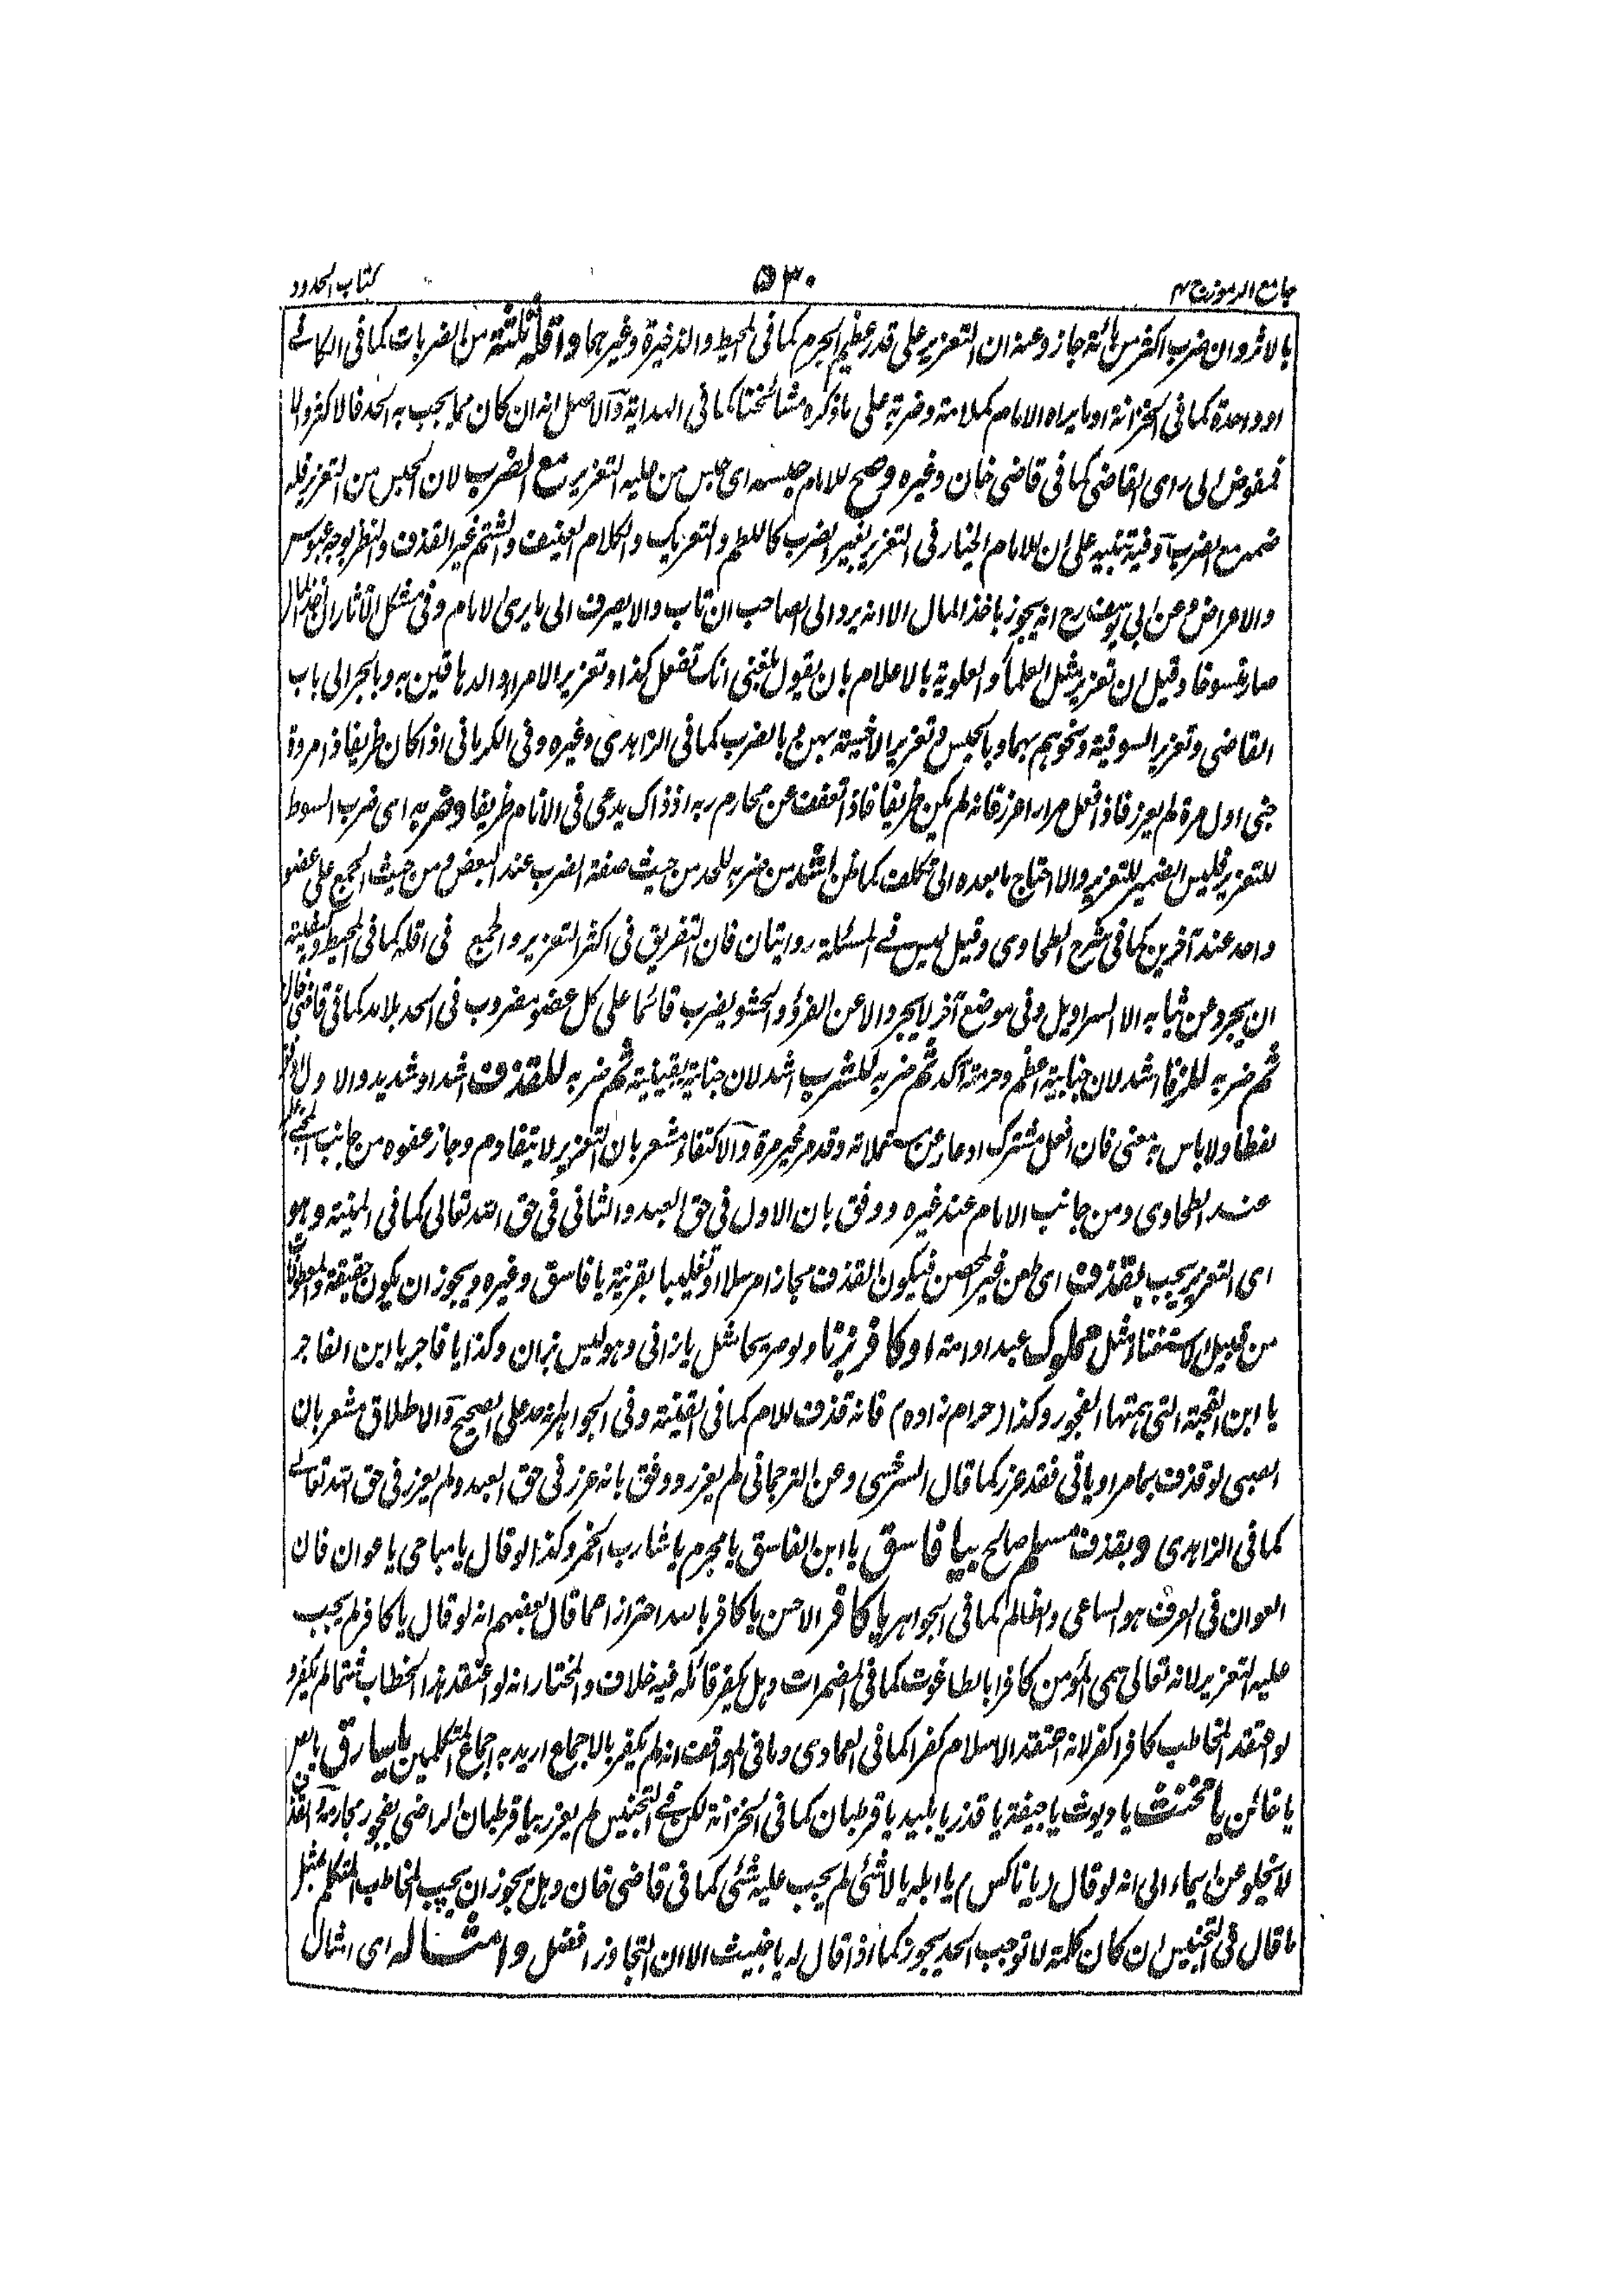 جامع الرموز ج ۲
۵۳۰
كتاب الحدود
بالاثر وان ضرب اكثر من مائة جاز وعنه ان التعزير على قدر عظم الجرم كما فى المحيط والذخيرة وغيرهما واقله ثلثة من الضربات كما فى الكافے
او واحدة كما فى الخزانة او ما يراه الامام كملامة وضربة على ما ذكره مشائخنا كما فى الهداية والاصل انه ان كان مما يجب به الحد فالاكثر والا
فمفوض الى راى القاضى كما فى قاضى خان وغيره وصح للامام حبسه اى حبس من عليه التعزير مع الضرب لان الحبس من التعزير فله
ضمه مع الضرب وفيه تنبيه على ان للامام الخيار فى التعزير بغير الضرب كاللطم والتعريك والكلام العنيف والشتم غير القذف والنظر بوجه عبوس
والاعراض وعن ابى يوسف رح انه يجوز باخذ المال الا انه يرد الى الصاحب ان تاب والا يصرف الى ما يرى الامام وفى مشكل الآثار ان اخذ المال
صار منسوخا وقيل ان تعزير مثل العلماء والعلوية بالاعلام بان يقول بلغنى انك تفعل كذا وتعزير الامراء والدهاقين به وبالجر الى باب
القاضى وتعزير السوقية ونحوهم بهما وبالحبس وتعزير الاخسة بهن وبالضرب كما فى الزاهدى وغيره وفى الكرمانى اذا كان ظريفا ذا مروة
جنى اول مرة لم يعزر فاذا فعل مرارا عزر فانه لم يكن ظريفا فاذا تعفف عن محارم ربه اذ ذاك يدعى فى الانام ظريفا وضربه اى ضرب السوط
للتعزير فليس الضمير للتعزير والا احتاج ما بعده الى تكلف كما ظن اشد من ضربه للحد من حيث صفة الضرب عند البعض ومن حيث الجمع على عضو
واحد عند آخرين كما فى شرح الطحاوى وقيل ليس فے المسئلة روايتان فان التفريق فى اكثر التعزير والجمع فى اقله كما فى المحيط وكيفيته
ان يجرد عن ثيابه الا السراويل وفى موضع آخر لا يجرد الا عن الفرو والحشو يضرب قائما على كل عضو مضروب فى الحد بلا مد كما فى قاضى خان
ثم ضربه للزنا اشد لان جنايته اعظم وحرمته آكد ثم ضربه للشرب اشد لان جنايته يقينية ثم ضربه للقذف اشد او شديد والاول
لفظا ولا باس به معنى فان افعل مشترك او عار عن مستعملاته وقد مر غير مرة والاكتفاء مشعر بان التعزير لا يتقادم وجاز عفوه من جانب المجنى عليه
عند الطحاوى ومن جانب الامام عند غيره ووفق بان الاول فى حق العبد والثانى فى حق الله تعالى كما فى المنية وهو
اى التعزير يجب بقذف اى طعن غير المحصن فيكون القذف مجازا مرسلا او تغليبا بقرينة يا فاسق وغيره ويجوز ان يكون حقيقة والمعطوفات
من قبيل الاستغناء مثل مملوك عبد او امة او كافر بزنا ولو صريحا مثل يا زانى وهو ليس بزان وكذا يا فاجر يا ابن الفاجر
يا ابن القحبة التى همتها الفجور وكذا (حرام زاده) فانه قذف للام كما فى القنية وفى الجواهر انه حد على الصحيح والاطلاق مشعر بان
الصبى لو قذف بما مر او ياتى فقد عزر كما قال السرخسى وعن الترجمانى لم يعزر ووفق بانه عزر فى حق العبد ولم يعزر فى حق الله تعالے
كما فى الزاهدى وبقذف مسلم صالح بيا فاسق يا ابن الفاسق يا مجرم يا شارب الخمر وكذا لو قال يا مباحى يا عوان فان
العوان فى العرف هو الساعى والظالم كما فى الجواهر يا كافر الاحسن يا كافر بالله احترازا عما قال بعضهم انه لو قال يا كافر لم يجب
عليه التعزير لانه تعالى سمى المؤمن كافرا بالطاغوت كما فى المضمرات وهل يكفر قائله فيه خلاف والمختار انه لو اعتقد هذا الخطاب شتما لم يكفر و
لو اعتقد المخاطب كافرا كفر لانه اعتقد الاسلام كفرا كما فى العمادى وما فى المواقف انه لم يكفر بالاجماع اريد به اجماع المتكلمين يا سارق يا لص
يا خائن يا مخنث يا ديوث يا جيفة يا قذر يا بليد يا قرطبان كما فى الخزانة لكن فے التجنيس لم يعزر بيا قرطبان الراضى بفجور محارمه
لا يخلو عن ايماء الى انه لو قال (يا ناكس) يا ابله يا لا شئ لم يجب عليه شئ كما فى قاضى خان وهل يجوز ان يجيب المخاطب المتكلم بمثل
ما قال فى التجنيس ان كان كلمة لا توجب الحد يجوز كما اذا قال له يا خبيث الا ان التجاوز افضل وامثاله اى امثال